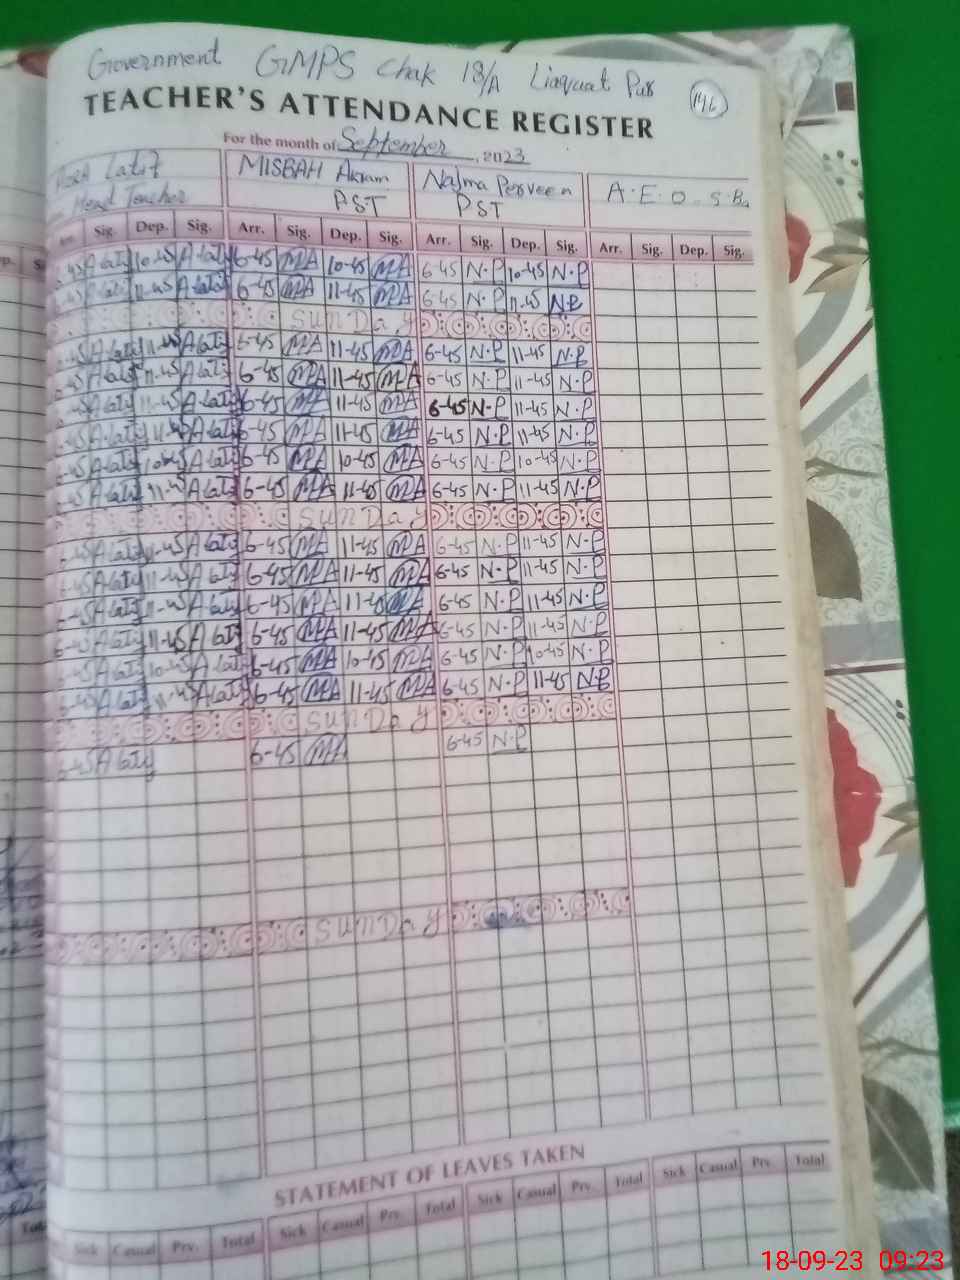 Government GMPS Chak 18/A Liaquat Pur
146
TEACHER'S ATTENDANCE REGISTER
For the month of September, 2023
Latif MISBAH Akram Najma Perveen A.E.O.S.B
Head Teacher PST PST
Arr. Sig. Dep. Sig. Arr. Sig. Dep. Sig. Arr. Sig. Dep. Sig. Arr. Sig. Dep. Sig.
10-45 6-45 MA 10-45 MA 6-45 N.P 10-45 N.P
11-45 6-45 MA 11-45 MA 6-45 N.P 11-45 N.P
SUNDAY
11-45 6-45 MA 11-45 MA 6-45 N.P 11-45 N.P
11-45 6-45 MA 11-45 MA 6-45 N.P 11-45 N.P
11-45 6-45 MA 11-45 MA 6-45 N.P 11-45 N.P
11-45 6-45 MA 11-45 MA 6-45 N.P 11-45 N.P
10-45 6-45 MA 10-45 MA 6-45 N.P 10-45 N.P
11-45 6-45 MA 11-45 MA 6-45 N.P 11-45 N.P
SUNDAY
11-45 6-45 MA 11-45 MA 6-45 N.P 11-45 N.P
11-45 6-45 MA 11-45 MA 6-45 N.P 11-45 N.P
11-45 6-45 MA 11-45 MA 6-45 N.P 11-45 N.P
11-45 6-45 MA 11-45 MA 6-45 N.P 11-45 N.P
10-45 6-45 MA 10-45 MA 6-45 N.P 10-45 N.P
11-45 6-45 MA 11-45 MA 6-45 N.P 11-45 N.P
SUNDAY
6-45 6-45 MA 6-45 N.P
SUNDAY
STATEMENT OF LEAVES TAKEN
Sick Casual Prv. Total Sick Casual Prv. Total Sick Casual Prv. Total Sick Casual Prv. Total
18-09-23 09:23